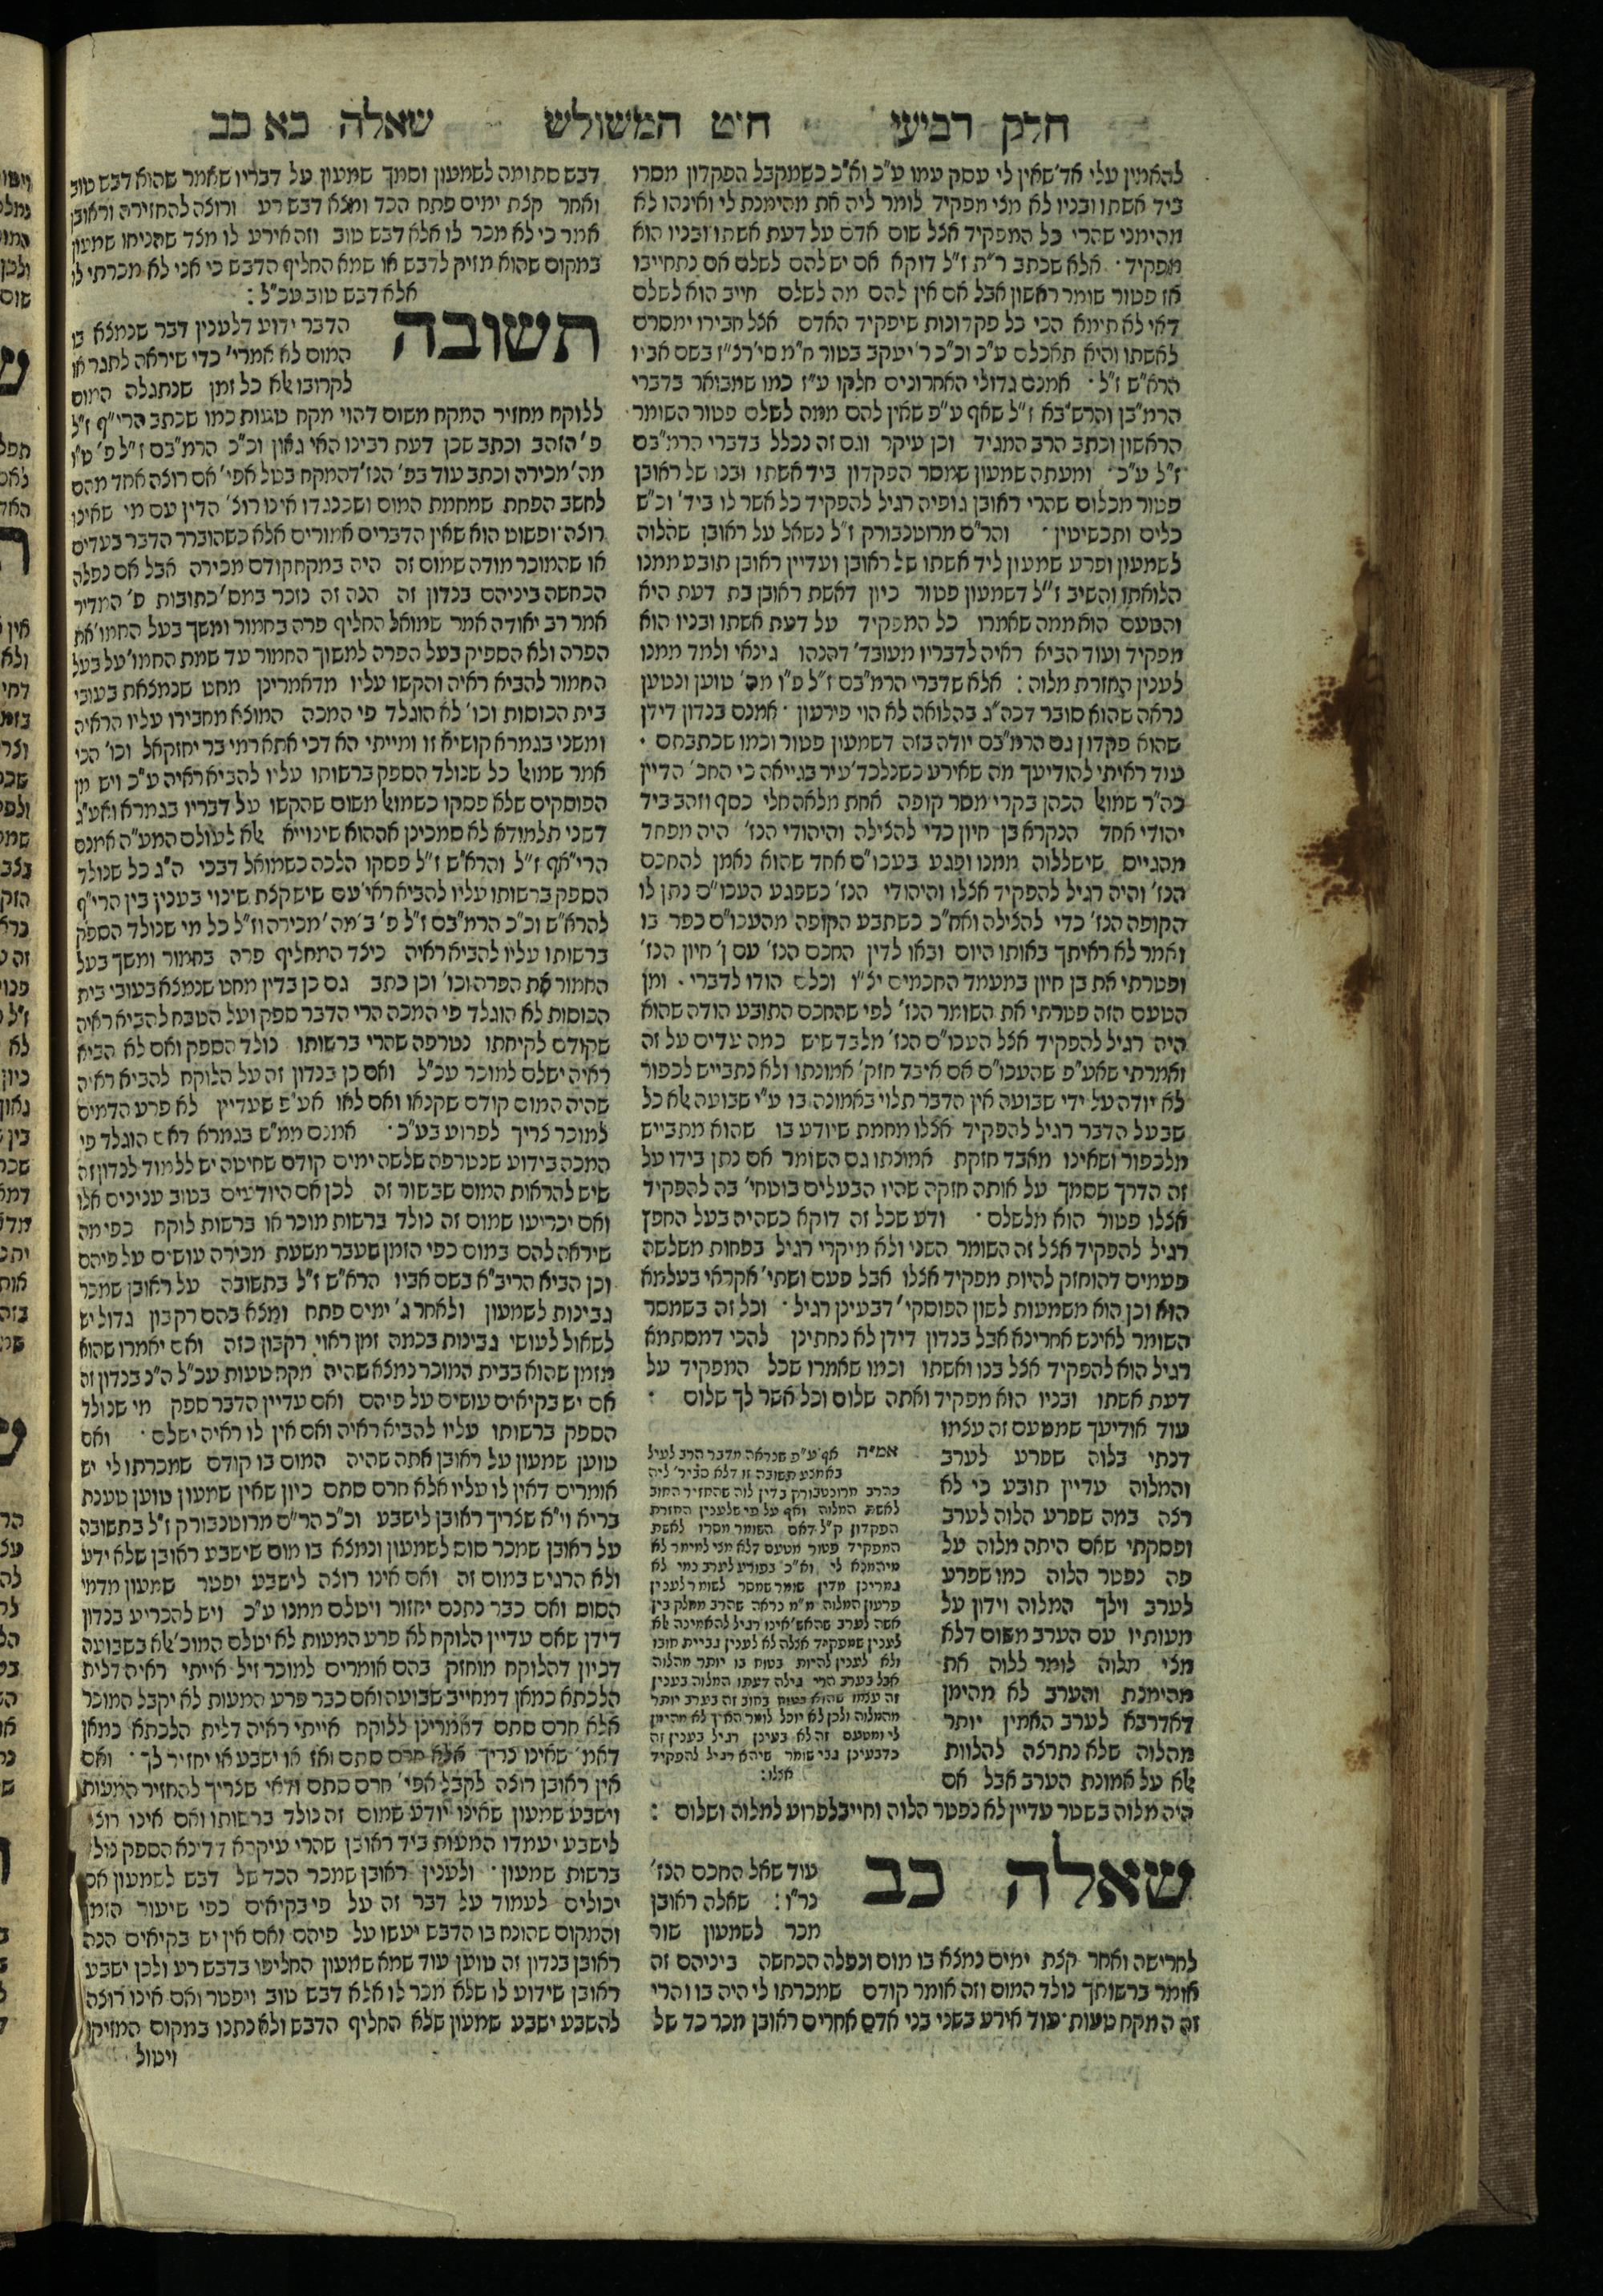 חלק רביעי חוט המשולש שאלה כא כב
להאמין עלי אד' שאין לי עסק עמו ע"כ וא"כ כשמקבל הפקדון מסרו
ביד אשתו ובניו לא מצי מפקיד לומר ליה את מהימנת לי ואינהו לא
מהימני שהרי כל המפקיד אצל שום אדם על דעת אשתו ובניו הוא
מפקיד · אלא שכתב ר"ת ז"ל דוקא אם יש להם לשלם אם נתחייבו
אז פטור שומר ראשון אבל אם אין להם מה לשלם חייב הוא לשלם
דאי לא תימא הכי כל פקדונות שיפקיד האדם אצל חבירו ימסרם
לאשתו והיא תאכלם ע"כ וכ"כ ר' יעקב בטור ח"מ סי' רצ"ז בשם אביו
הרא"ש ז"ל · אמנם גדולי האחרונים חלקו ע"ז כמו שמבואר בדברי
הרמ"בן והרש"בא ז"ל שאף ע"פ שאין להם ממה לשלם פטור השומר
הראשון וכתב הרב המגיד וכן עיקר וגם זה נכלל בדברי הרמ"בם
ז"ל ע"כ · ומעתה שמעון שמסר הפקדון ביד אשתו ובנו של ראובן
פטור מכלום שהרי ראובן גופיה רגיל להפקיד כל אשר לו ביד' וכ"ש
כלים ותכשיטין · והר"ם מרוטנבורק ז"ל נשאל על ראובן שהלוה
לשמעון ופרע שמעון ליד אשתו של ראובן ועדיין ראובן תובע ממנו
הלואתו והשיב ז"ל דשמעון פטור כיון דאשת ראובן בת דעת היא
והטעם הוא ממה שאמרו כל המפקיד על דעת אשתו ובניו הוא
מפקיד ועוד הביא ראיה לדבריו מעובד' דהנהו גינאי ולמד ממנו
לענין החזרת מלוה : אלא שדברי הרמ"בם ז"ל פ"ו מה' טוען ונטען
נראה שהוא סובר דכה"ג בהלואה לא הוי פירעון · אמנם בנדון דידן
שהוא פקדון גם הרמ"בם יודה בזה דשמעון פטור וכמו שכתבתם ·
עוד ראיתי להודיעך מה שאירע כשנלכד' עיר בגייאה כי החכ' הדיין
כה"ר שמואל הכהן בקרי מסר קופה אחת מלאה חלי כסף וזהב ביד
יהודי אחד הנקרא בן חיון כדי להצילה והיהודי הנז' היה מפחד
מהגוים שישללוה ממנו ופגע בעכו"ם אחד שהוא נאמן להחכם
הנז' והיה רגיל להפקיד אצלו והיהודי הנז' כשפגע העכו"ם נתן לו
הקופה הנז' כדי להצילה ואח"כ כשתבע הקופה מהעכו"ם כפר בו
ואמר לא ראיתך באותו היום ובאו לדין החכם הנז' עם ן' חיון הנז'
ופטרתי את בן חיון במעמד החכמים יצ"ו וכלם הודו לדברי · ומן
הטעם הזה פטרתי את השומר הנז' לפי שהחכם התובע הודה שהוא
היה רגיל להפקיד אצל העכו"ם הנז' מלבד שיש כמה עדים על זה
ואמרתי שאע"פ שהעכו"ם אם איבד חזק' אמונתו ולא נתבייש לכפור
לא יודה על ידי שבועה אין הדבר תלוי באמונה בו ע"י שבועה אלא כל
שבעל הדבר רגיל להפקיד אצלו מחמת שיודע בו שהוא מתבייש
מלכפור ושאינו מאבד חזקת אמונתו גם השומר אם נתן בידו על
זה הדרך שסמך על אותה חזקה שהיו הבעלים בוטחי' בה להפקיד
אצלו פטור הוא מלשלם · ודע שכל זה דוקא כשהיה בעל החפץ
רגיל להפקיד אצל זה השומר השני ולא מיקרי רגיל בפחות משלשה
פעמים דהוחזק להיות מפקיד אצלו אבל פעם ושתי' אקראי בעלמא
הוא וכן הוא משמעות לשון הפוסקי' דבעינן רגיל · וכל זה בשמסר
השומר לאינש אחרינא אבל בנדון דידן לא נחתינן להכי דמסתמא
רגיל הוא להפקיד אצל בנו ואשתו וכמו שאמרו שכל המפקיד על
דעת אשתו ובניו הוא מפקיד ואתה שלום וכל אשר לך שלום :
עוד אודיעך שמטעם זה עצמו
דנתי בלוה שפרע לערב
והמלוה עדיין תובע כי לא
רצה במה שפרע הלוה לערב
ופסקתי שאם היתה מלוה על
פה נפטר הלוה כמו שפרע
לערב וילך המלוה וידון על
מעותיו עם הערב משום דלא
מצי מלוה לומר ללוה את
מהימנת והערב לא מהימן
דאדרבא לערב האמין יותר
מהלוה שלא נתרצה להלוות
אלא על אמונת הערב אבל אם
היה מלוה בשטר עדיין לא נפטר הלוה וחייב לפרוע למלוה ושלום :
אמ"ה אף ע"פ שנראה מדבר הרב לעיל
באמצע תשובה זו דלא סביר' ליה
כהרב מרוטנבורק בדין לוה שהחזיר החוב
לאשת המלוה ואף על פי שלענין החזרת
הפקדון ק"ל דאם השומר מסרו לאשת
המפקיד פטור מטעם דלא מצי למימר לא
מיהמנא לי וא"כ בפורע לערב נמי לא
גמרינן מדין שומר שמסר לשומר לענין
פרעון המלוה מ"מ נראה שהרב מחלק בין
אשה לערב שהאש' אינו רגיל להאמינה אלא
לענין שמפקיד אצלה לא לענין גביית חובו
ולא לענין להיות בטוח בו יותר מהלוה
אבל בערב הרי גילה דעתו המלוה בענין
זה עצמו שהוא בטוח בחוב זה בערב יותר
מהמלוה ולכן לא יוכל לומר האי' לא מהימן
לי ומטעם זה לא בעינן רגיל בענין זה
כדבעינן גבי שומר שיהא רגיל להפקיד
אצלו :
שאלה כב
עוד שאל החכם הנז'
נר"ו : שאלה ראובן
מכר לשמעון שור
לחרישה ואחר קצת ימים נמצא בו מום ונפלה הכחשה ביניהם זה
אומר ברשותך נולד המום וזה אומר קודם שמכרתו לי היה בו והרי
זה המקח טעות · עוד אירע בשני בני אדם אחרים ראובן מכר כד של
דבש סתומה לשמעון וסמך שמעון על דבריו שאמר שהוא דבש טוב
ואחר קצת ימים פתח הכד ומצא דבש רע ורוצה להחזירה וראובן
אמר כי לא מכר לו אלא דבש טוב וזה אירע לו מצד שהניחו שמעון
במקום שהוא מזיק לדבש או שמא החליף הדבש כי אני לא מכרתי לו
אלא דבש טוב עכ"ל :
תשובה
הדבר ידוע דלענין דבר שנמצא בו
המום לא אמרי' כדי שיראה לתגר או
לקרובו אלא כל זמן שנתגלה המום
ללוקח מחזיר המקח משום דהוי מקח טעות כמו שכתב הרי"ף ז"ל
פ' הזהב וכתב שכן דעת רבינו האי גאון וכ"כ הרמ"בם ז"ל פ' ט"ו
מה' מכירה וכתב עוד בפ' הנז' דהמקח בטל אפי' אם רוצה אחד מהם
לחשב הפחת שמחמת המום ושכנגדו אינו רוצ' הדין עם מי שאינו
רוצה · ופשוט הוא שאין הדברים אמורים אלא כשהוברר הדבר בעדים
או שהמוכר מודה שמום זה היה במקח קודם מכירה אבל אם נפלה
הכחשה ביניהם בנדון זה הנה זה נזכר במס' כתובות פ' המדיר
אמר רב יאודה אמר שמואל החליף פרה בחמור ומשך בעל החמו' את
הפרה ולא הספיק בעל הפרה למשוך החמור עד שמת החמו' על בעל
החמור להביא ראיה והקשו עליו מדאמרינן מחט שנמצאת בעובי
בית הכוסות וכו' לא הוגלד פי המכה המוציא מחבירו עליו הראיה
ומשני בגמרא קושיא זו ומייתי הא דכי אתא רמי בר יחזקאל וכו' הכי
אמר שמואל כל שנולד הספק ברשותו עליו להביא ראיה ע"כ ויש מן
הפוסקים שלא פסקו כשמואל משום שהקשו על דבריו בגמרא ואע"ג
דשני תלמודא לא סמכינן אההוא שינוייא אלא לעולם המע"ה אמנם
הרי"אף ז"ל והרא"ש ז"ל פסקו הלכה כשמואל דבכי ה"ג כל שנולד
הספק ברשותו עליו להביא ראי' עם שיש קצת שינוי בענין בין הרי"ף
להרא"ש וכ"כ הרמ"בם ז"ל פ' כ' מה' מכירה וז"ל כל מי שנולד הספק
ברשותו עליו להביא ראיה כיצד המחליף פרה בחמור ומשך בעל
החמור את הפרה וכו' וכן כתב גם כן בדין מחט שנמצא בעובי בית
הכוסות לא הוגלד פי המכה הרי הדבר ספק ועל הטבח להביא ראיה
שקודם לקיחתו נטרפה שהרי ברשותו נולד הספק ואם לא הביא
ראיה ישלם למוכר עכ"ל ואם כן בנדון זה על הלוקח להביא ראיה
שהיה המום קודם שקנאו ואם לאו אע"פ שעדיין לא פרע הדמים
למוכר צריך לפרוע בע"כ · אמנם ממ"ש בגמרא דאם הוגלד פי
המכה בידוע שנטרפה שלשה ימים קודם שחיטה יש ללמוד לנדון זה
שיש להראות המום שבשור זה לכן אם היודעים בטוב ענינים אלו
ואם יכריעו שמום זה נולד ברשות מוכר או ברשות לוקח כפי מה
שיראה להם במום כפי הזמן שעבר משעת מכירה עושים על פיהם
וכן הביא הריב"א בשם אביו הרא"ש ז"ל בתשובה על ראובן שמכר
גבינות לשמעון ולאחר ג' ימים פתח ומצא בהם רקבון גדול יש
לשאול לעושי גבינות בכמה זמן ראוי רקבון כזה ואם יאמרו שהוא
מזמן שהוא בבית המוכר נמצא שהיה מקח טעות עכ"ל ה"נ בנדון זה
אם יש בקיאים עושים על פיהם ואם עדיין הדבר ספק מי שנולד
הספק ברשותו עליו להביא ראיה ואם אין לו ראיה ישלם · ואם
טוען שמעון על ראובן אתה שהיה המום בו קודם שמכרתו לי יש
אומרים דאין לו עליו אלא חרם סתם כיון שאין שמעון טוען טענת
בריא וי"א שצריך ראובן לישבע וכ"כ הר"ם מרוטנבורק ז"ל בתשובה
על ראובן שמכר סוס לשמעון ונמצא בו מום שישבע ראובן שלא ידע
ולא הרגיש במום זה ואם אינו רוצה לישבע יפטר שמעון מדמי
הסוס ואם כבר נתנם יחזור ויטלם ממנו ע"כ ויש להכריע בנדון
דידן שאם עדיין הלוקח לא פרע המעות לא יטלם המוכ' אלא בשבועה
דכיון דהלוקח מוחזק בהם אומרים למוכר זיל אייתי ראיה דלית
הלכתא כמאן דמחייב שבועה ואם כבר פרע המעות לא יקבל המוכר
אלא חרם סתם דאמרינן ללוקח אייתי ראיה דלית הלכתא כמאן
דאמ' שאינו צריך אלא חרם סתם ואז או ישבע או יחזיר לך · ואם
אין ראובן רוצה לקבל אפי' חרם סתם ודאי שצריך להחזיר המעות
וישבע שמעון שאינו יודע שמום זה נולד ברשותו ואם אינו רוצ'
לישבע יעמדו המעות ביד ראובן שהרי עיקרא דדינא הספק נול'
ברשות שמעון · ולענין ראובן שמכר הכד של דבש לשמעון אם
יכולים לעמוד על דבר זה על פי בקיאים כפי שיעור הזמן
והמקום שהונח בו הדבש יעשו על פיהם ואם אין יש בקיאים הנה
ראובן בנדון זה טוען עוד שמא שמעון החליפו בדבש רע ולכן ישבע
ראובן שידוע לו שלא מכר לו אלא דבש טוב ויפטר ואם אינו רוצה
להשבע ישבע שמעון שלא החליף הדבש ולא נתנו במקום המזיקו
ויטול